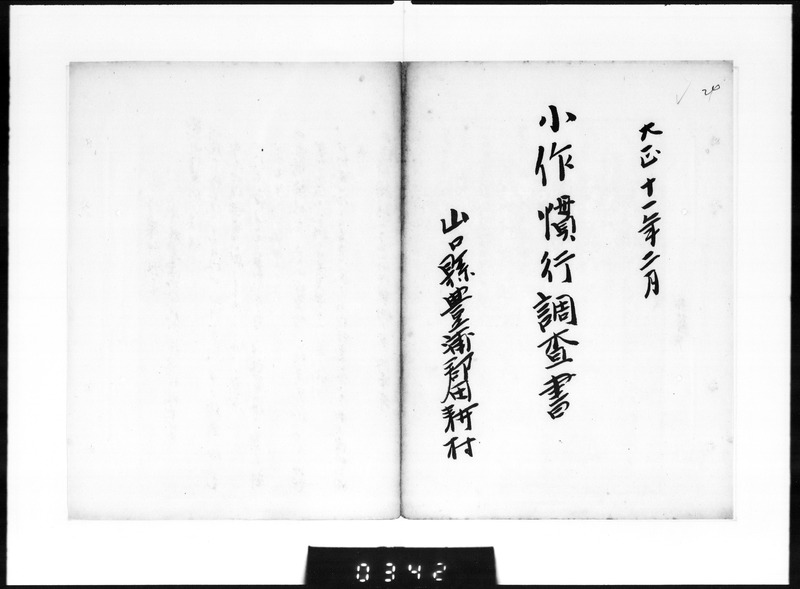 大正十一年二月
小作慣行調査書
山口縣豊浦郡田耕村
0342